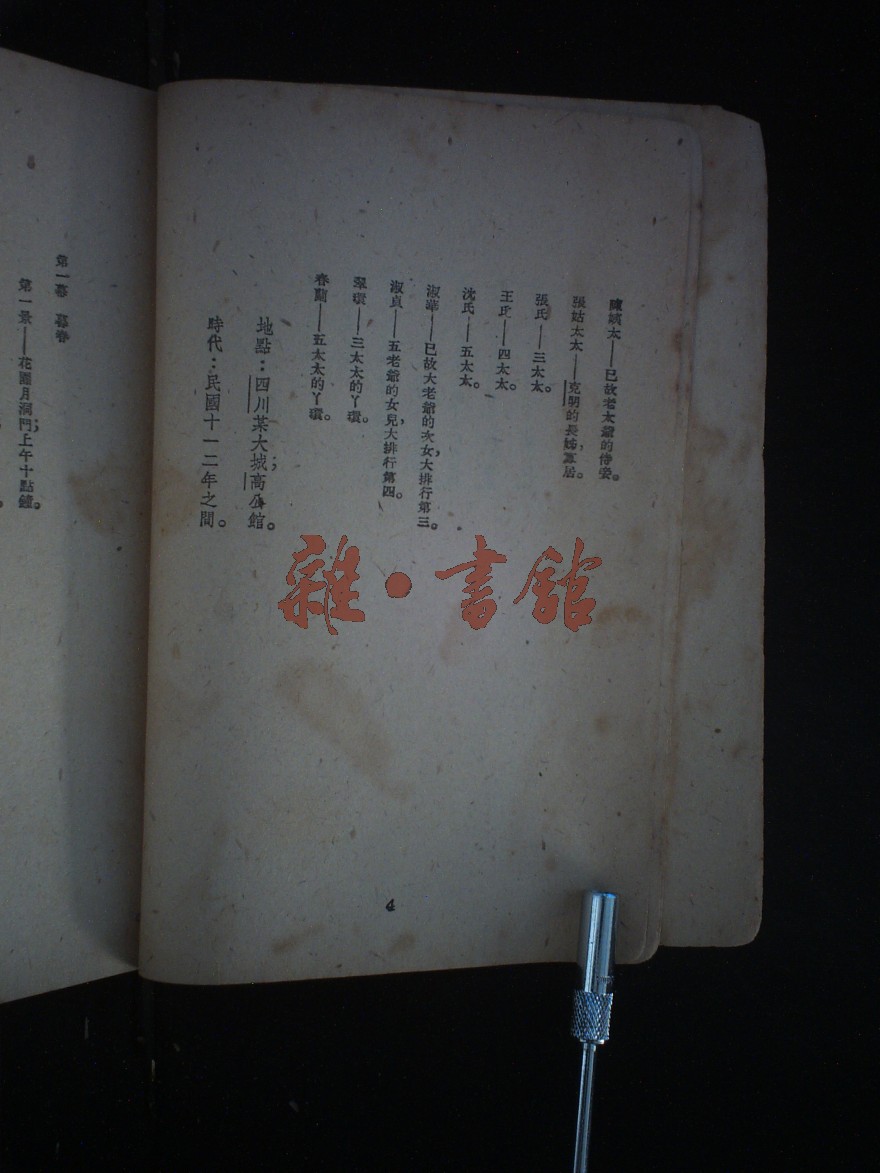 陳姨太——已故老太爺的侍妾。
張姑太太——克明的長姊,寡居。
張氏——三太太。
王氏——四太太。
沈氏——五太太。
淑華——已故大老爺的次女,大排行第三。
淑貞——五老爺的女兒,大排行第四。
翠環——三太太的丫環。
春蘭——五太太的丫環。
地點:四川某大城,高公館。
時代:民國十一二年之間。
4
第一幕 暮春
第一景——花園月洞門,上午十點鐘。
雜·書館